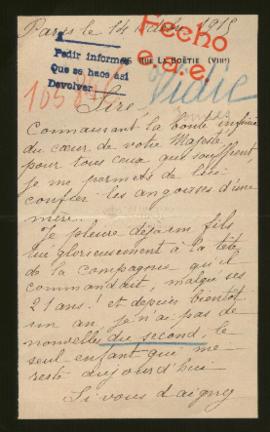 Paris le 14 Octobre 1915
Fecho
e.a.e.
RUE LA BOËTIE (VIIIe)
Pedir informes
Que se haos asi
Devolver
Sire,
Connaissant la bonté infinie
du cœur de votre Majesté
pour tous ceux qui souffrent
je me permets de lui
confier les angoisses d'une
mère.
Je pleure déjà un fils
tué glorieusement à la tête
de la compagnie qu'il
commandait, malgré ses
21 ans! et depuis bientôt
un an, je n'ai pas de
nouvelles du second, le
seul enfant qui me
reste aujourd'hui
Si vous daignez